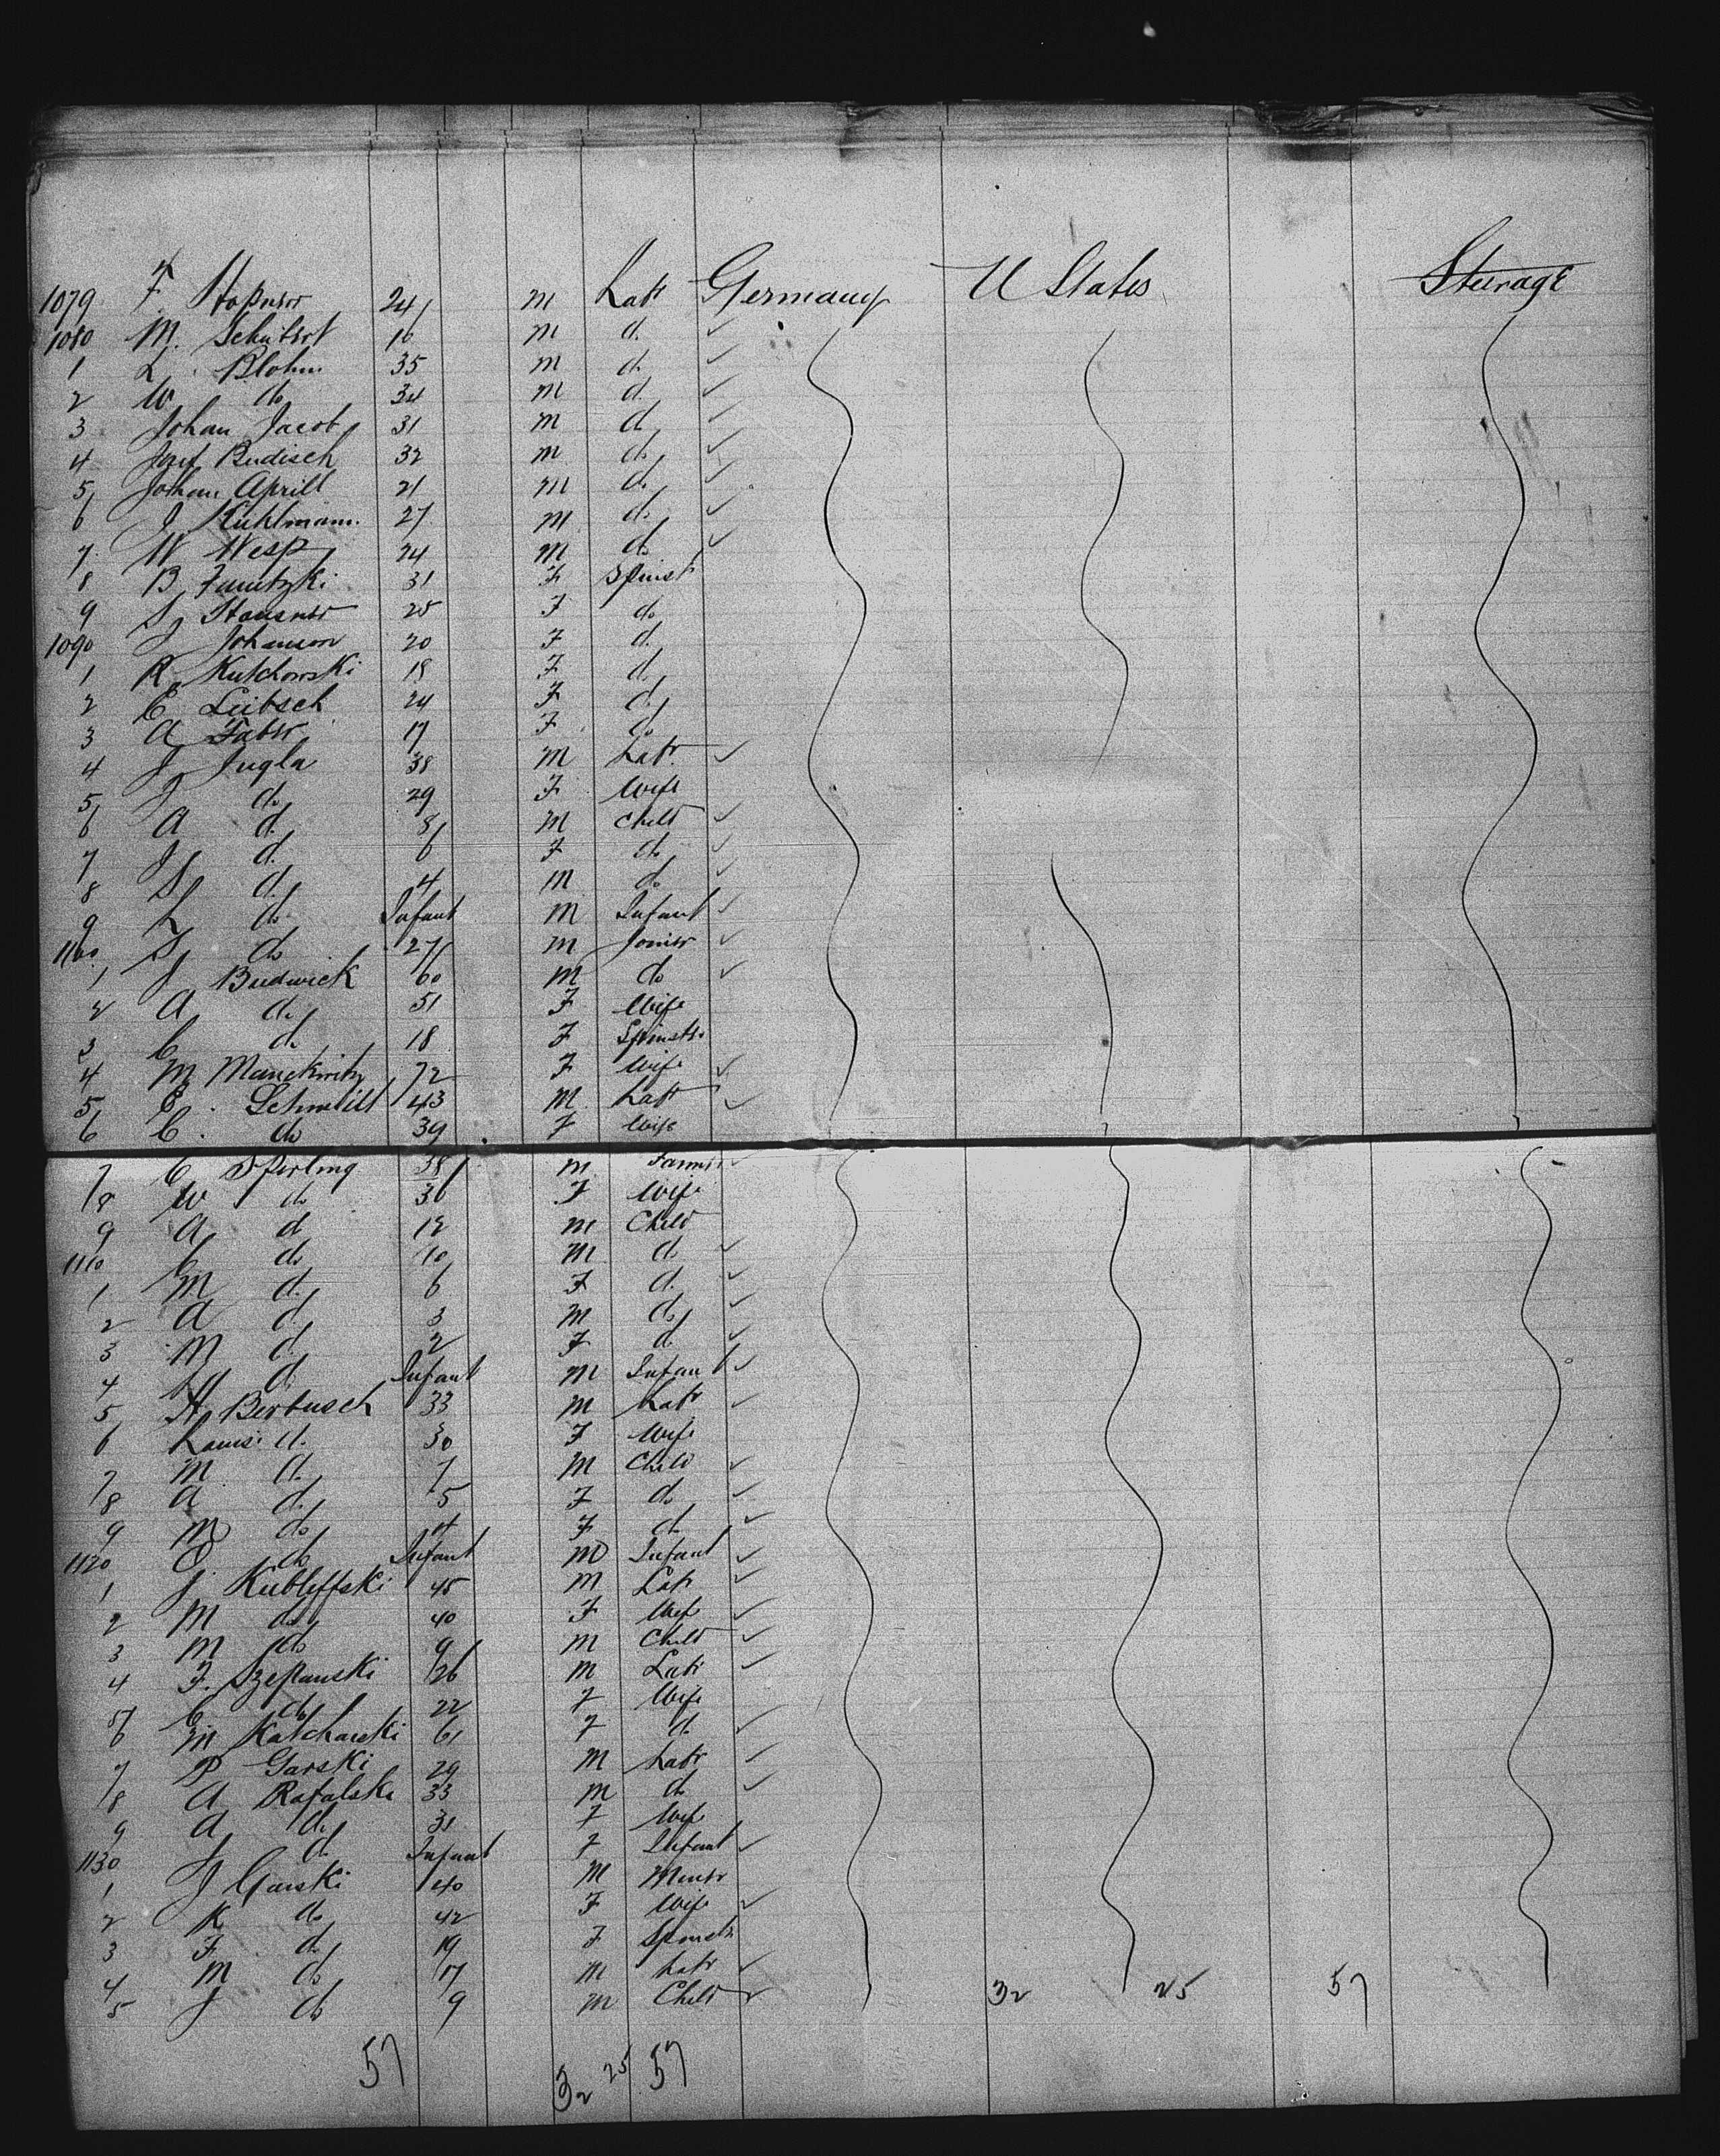 1079 F. Stopner 24 m Labr Germany U States Steerage
1080 M. Schubert 16 m d.
1 L. Blohm 35 m d.
2 W. do 34 m d.
3 Johan Jacob 31 m d.
4 Josef Budisch 32 m do
5 Johan Aprill 21 m do
6 J Kuhlmann. 27 m do
7 W Wesp 24 m do
8 B 31 F Spinst
9 S 25 F do
1090 J Johanson 20 F d.
1 R. Kutchowski 18 F d.
2 E Leibsch 24 F d.
3 A Faber 17 F do
4 J Jugla 38 m Labr.
5 do 29 F Wife
6 A d. 8 m Child
7 J d. 6 F do
8 S d. 4 m do
9 L do Infant m Infant
1100 S do 27 m Joiner
1 J Budwick 60 m do
2 A do 51 F Wife
3 C do 18 F Spinstr.
4 M Manckwitz 72 F Wife
5 E. Schmidt 43 m Labr
6 C. do 39 F Wife
7 C Sperling 38 m Farmer
8 W do 36 F Wife
9 A d 12 m Child
1110 C do 10 m d
1 M d. 6 F d.
2 A d 3 m do
3 M d 2 F d.
4 d Infant m Infant
5 H Berbusch 33 m Labr
6 Louis. d. 30 F Wife
7 M d. 7 m Child
8 A d. 5 F do
9 M do 4 F d.
1120 O do Infant m Infant
1 J. Kubleffski 45 m Labr
2 M do 40 F Wife
3 M do 9 m Child
4 F. Szepanski 26 m Labr
5 C do 22 F Wife
6 M Katcharski 61 F d.
7 P Garski 29 m Labr
8 A Rafalski 33 m do
9 A do 31 F Wife
1130 J d. Infant F Infant
1 J Garski 40 m Miner
2 K do 42 F Wife
3 F. do 19 F Spinstr
4 M do 17 m Labr
5 J do 9 m Child 32 25 57
57 32 25 57